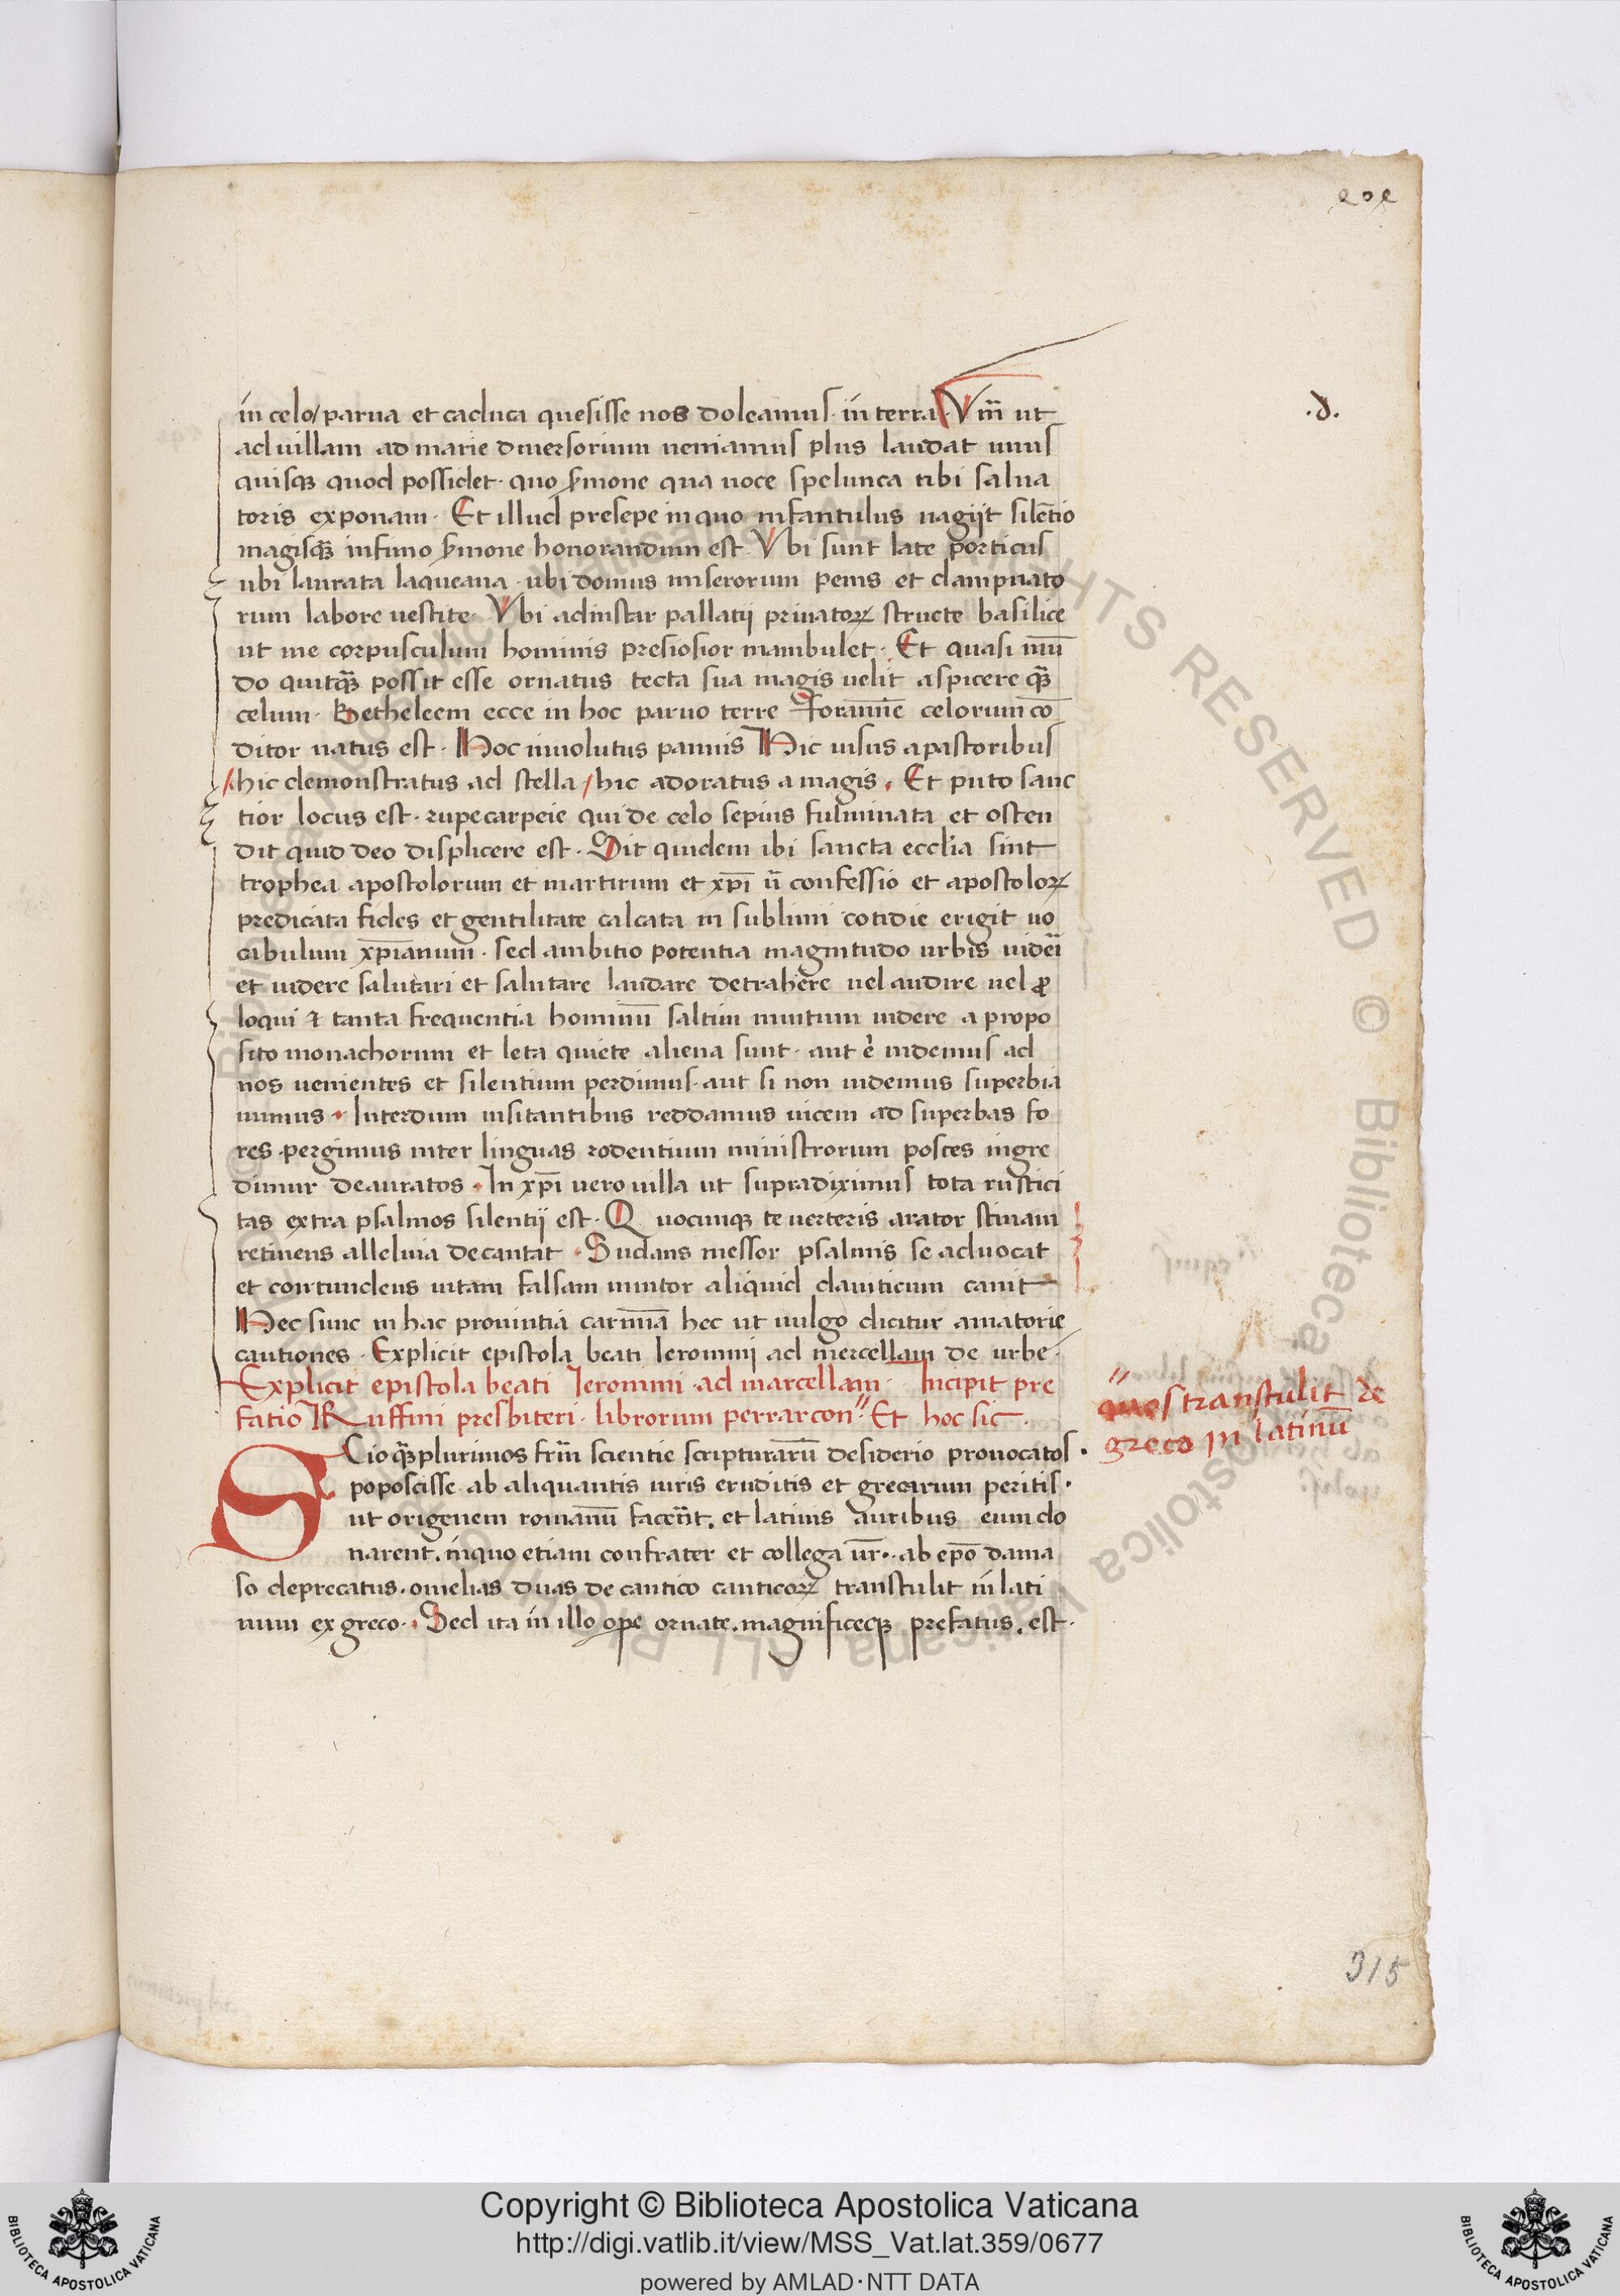 in celo/ parua et caduca quesisse nos doleamus · in terra · Vm̄ ut
ad uillam ad marie diuersorium ueniamus plus laudat unus
quisqꝫ quod possidet · quo ẜmone qua uoce spelunca tibi salua
toris exponam · Et illud presepe in quo infantulus uagijt silētio
magisqꝫ infimo ẜmone honorandum est · Vbi sunt late porticus
ubi laurata laqueana · ubi domus miserorum penis et dampnato
rum labore uestite · Vbi adinstar pallatij priuatoꝝ structe basilice
ut me corpusculum hominis presiosior inambulet · Et quasi mū
do quitqꝫ possit esse ornatus tecta sua magis uelit aspicere qꝫ
celum · Betheleem ecce in hoc paruo terre foramīe celorum cō
ditor natus est · Hoc inuolutus pannis Hic uisus a pastoribus
/hic demonstratus ad stella /hic adoratus a magis · Et puto sanc
tior locus est · rupe carpeie qui de celo sepius fulminata et osten
dit quid deo displicere est · Sit quidem ibi sancta ecclīa sint
trophea apostolorum et martirum et xp̄i ū confessio et apostoloꝝ
predicata fides et gentilitate calcata in sublimi cotidie erigit uo
cabulum xp̄ianum · sed ambitio potentia magnitudo urbis uidēi
et uidere salutari et salutare laudare detrahere uel audire uel ꝓ
loqui ⁊ tanta frequentia hominū saltim inuitum uidere a propo
sito monachorum et leta quiete aliena sunt · aut ē uidemus ad
nos uenientes et silentium perdimus · aut si non uidemus superbia
uimus · Interdum uisitantibus reddamus uicem ad superbas fo
res · pergimus inter linguas rodentium ministrorum posces ingre
dimur deauratos · In xp̄i uero uilla ut supradiximus tota rustici
tas extra psalmos silentij est · Quocunqꝫ te uerteris arator stiuam
retinens alleluia decantat · Sudans messor psalmis se aduocat
et contundens uitam falsam uinitor aliquid dauiticum canit
Hec sunc in hac prouintia carmīa hec ut uulgo dicitur amatorie
cautiones · Explicit epistola beati Ieronimi ad mercellam de urbe ·
Explicit epistola beati Ieronimi · ad marcellam · Incipit pre
fatio Ruffini presbiteri · librorum perrarcon · " Et hoc sic ·
" quos transtulit de
greco in latinū
Scio qꝫ plurimos frm̄ scientie scripturarū desiderio prouocatos ·
poposcisse · ab aliquantis uiris eruditis et grecarum peritis ·
ut origenem romanū facerēt · et latinis auribus eum do
narent · inquo etiam confrater et collega ur̄ · ab epō dama
so deprecatus · omelias duas de cantico canticoꝝ transtulit in lati
num ex greco · Sed ita in illo ope ornate · magnificeqꝫ prefatus · est ·
.d.
315
Copyright © Biblioteca Apostolica Vaticana
http://digi.vatlib.it/view/MSS_Vat.lat.359/0677
powered by AMLAD·NTT DATA
BIBLIOTECA APOSTOLICA VATICANA
BIBLIOTECA APOSTOLICA VATICANA